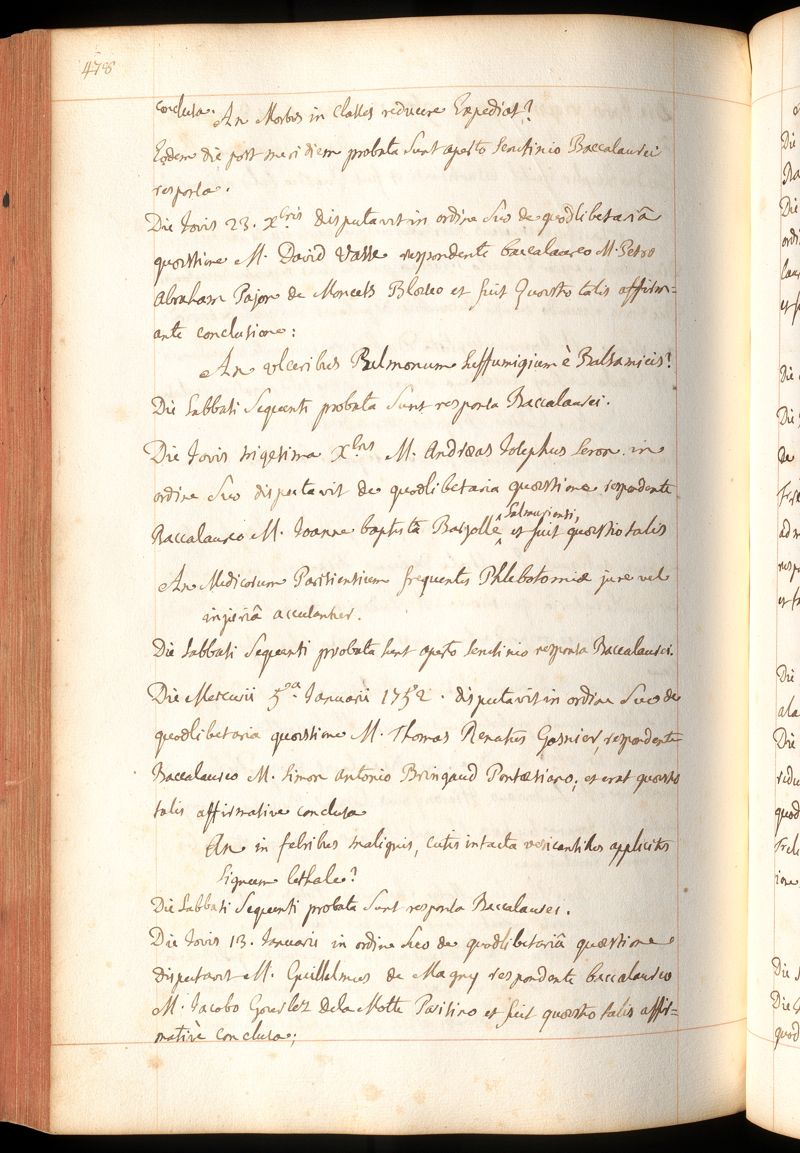 478
conclusa. An Morbos in classes reducere Expediat?
Eodem die post meridiem probata sunt aperto scrutinio Baccalaurei
responsa.
Die Jovis 23. Xbris disputavit in ordine suo de quodlibetariâ
quæstione M. David Vasse respondente baccalaureo M. Petro
Abraham Pajon de Moncets Blæseo et fuit Quæstio talis affirm=
ante conclusione:
An ulceribus Pulmonum suffumigium è Balsamicis?
Die Sabbati sequenti probata sunt responsa Baccalaurei.
Die Jovis trigesima Xbris M. Andræas Josephus Seron in
ordine suo disputavit de quodlibetaria quæstione respondente
Baccalaureo M. Joanne baptista ^ Salmuriensi, et fuit quæstio talis
An Medicorum Parisiensium frequentes Phlebotomiæ jure vel
injuriâ accusantur.
Die Sabbati sequenti probata sunt aperto scrutinio responsa Baccalaurei.
Die Mercurii 5ta Januarii 1752. disputavit in ordine suo de
quodlibetaria quæstione M. Thomas Renatus Gasnier, respondente
Baccalaureo M. Simon Antonio Bringaud Pontæsiano; et erat quæstio
talis affirmative conclusa
An in febribus malignis, cutis intacta vesicantibus applicitis
signum lethale?
Die Sabbati sequenti probata sunt responsa Baccalaurei.
Die Jovis 13. Januarii in ordine suo de quodlibetariâ quæstione
disputavit M. Guillelmus de Magny respondente baccalaureo
M. Jacobo dela Motte Parisino et fuit quæstio talis affir=
mativè conclusa;